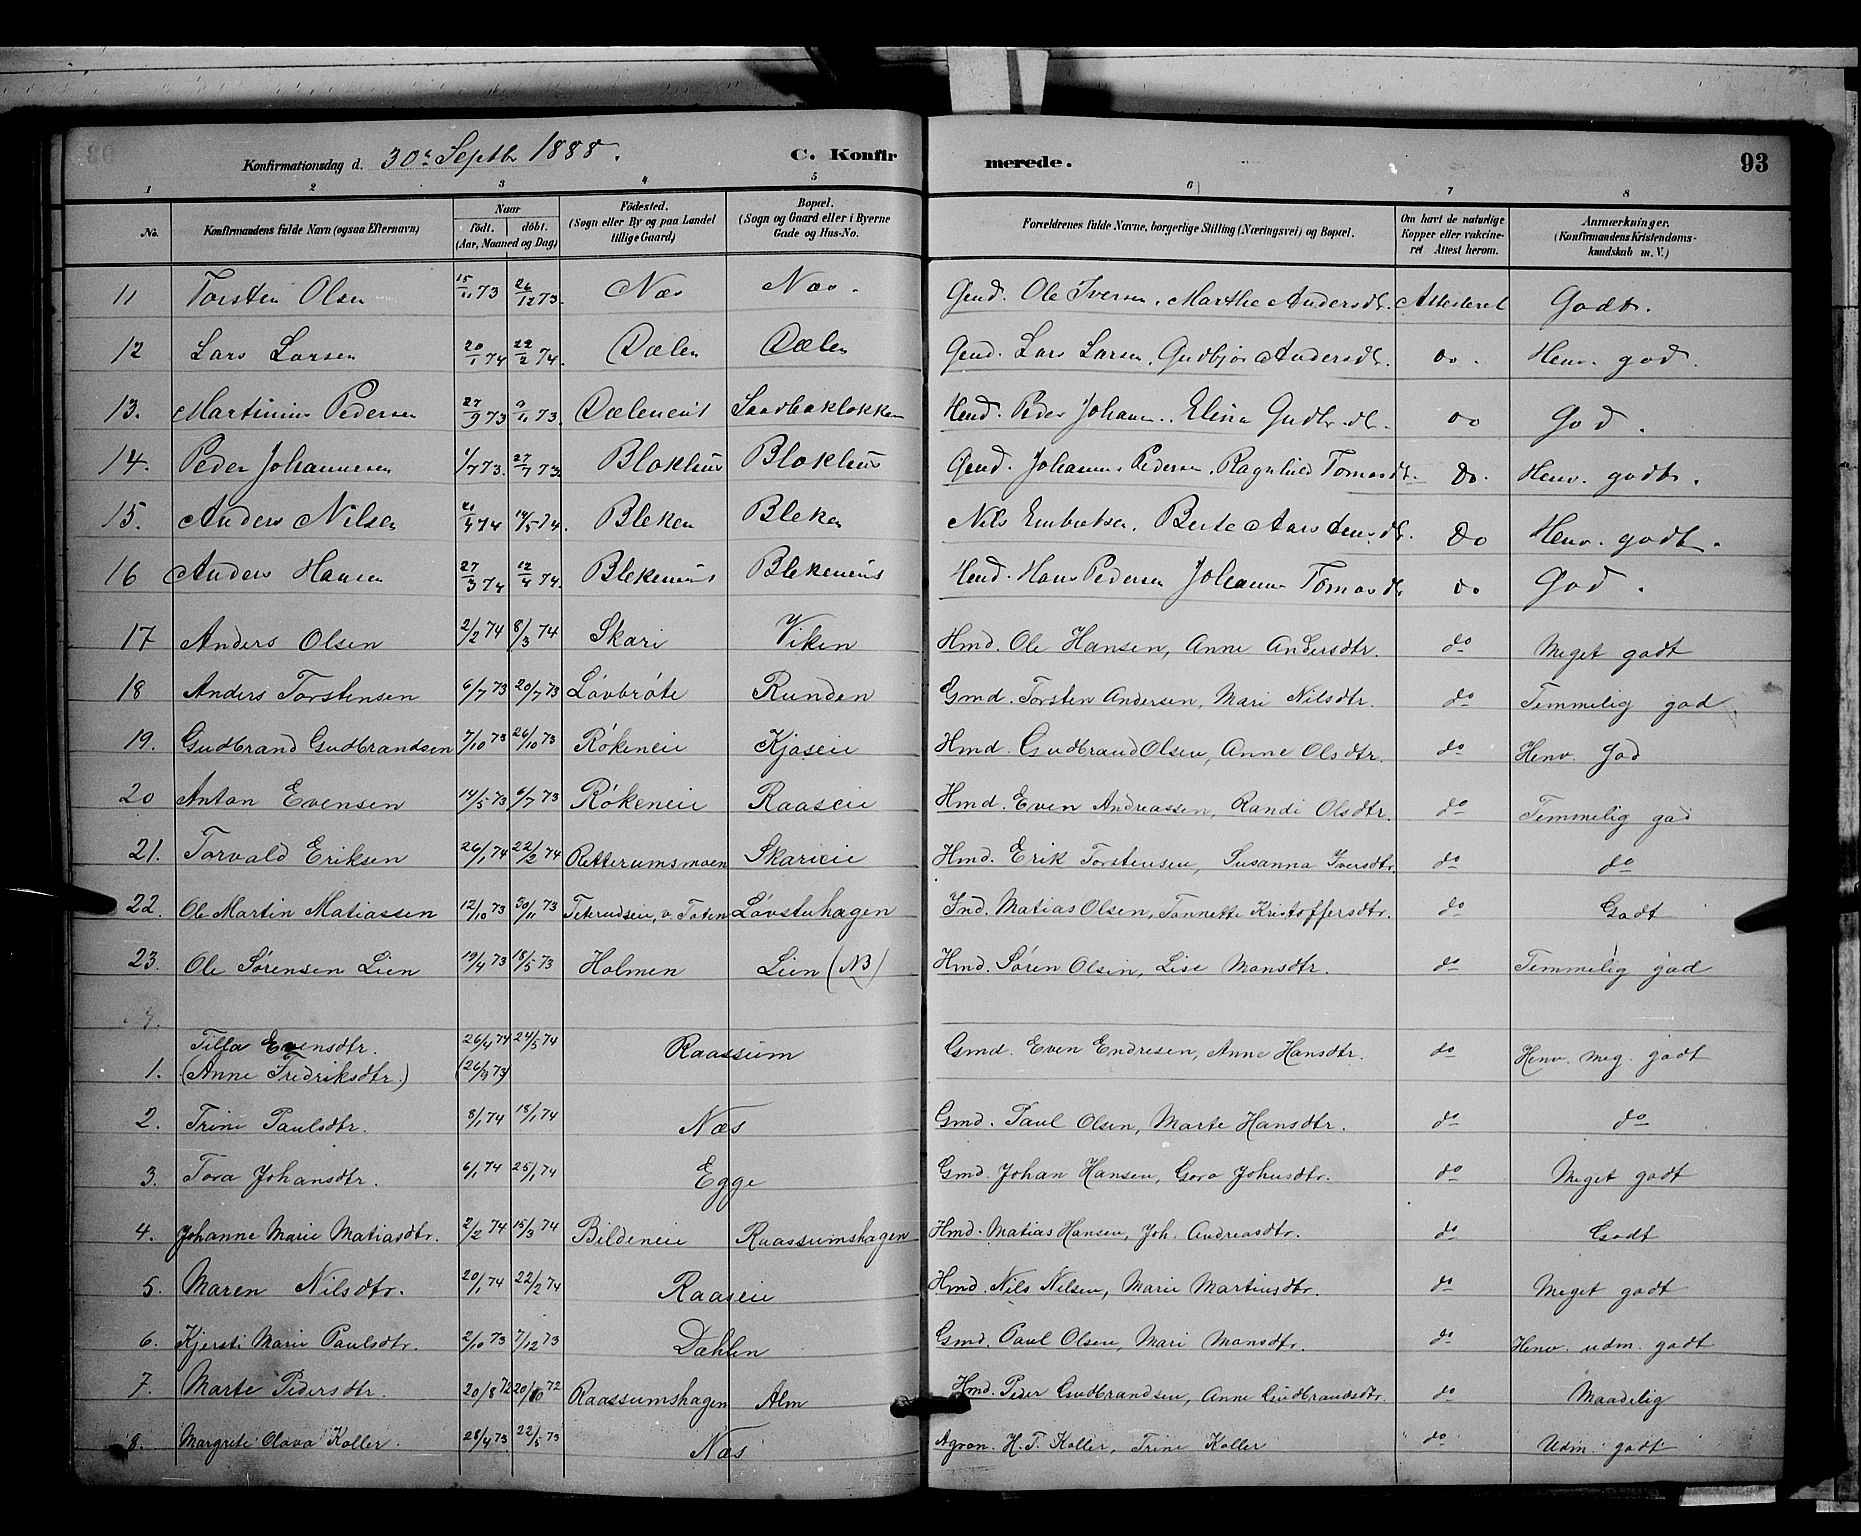 Konfirmationsdag d. 30te Septbr 1888. C. Konfirmerede. 93
1 2 3 4 5 6 7 8
No. Konfirmandens fulde Navn (ogsaa Efternavn) Naar født. døbt. (Aar, Maaned og Dag) Fødested. (Sogn eller By og paa Landet tillige Gaard) Bopæl. (Sogn og Gaard eller i Byerne Gade og Hus-No. Forældrenes fulde Navne, borgerlige Stilling (Næringsvei) og Bopæl. Om havt de naturlige Kopper eller vakcineret Attest herom. Anmærkninger. (Konfirmandens Kristendomskundskab m. V.)
11 Torsten Olsen 15/11 73 26/12 73. Næs Næs. Gmd. Ole Iversen, Marthe Andersdt. Attesteret Godt.
12 Lars Larsen 20/1 74 22/2 74. Dælen Dælen Gmd. Lars Larsen, Gudbjør Andersdt. do. Henv. god.
13. Martinius Pedersen 27/9 73 9/11 73. Dæleneiet Hmd. Peder Johansen, Eline Gudbr.dt. do God.
14. Peder Johannesen 1/7 73. 27/7 73 Blokhus Blokhus Gmd. Johannes Pedersen, Ragnhild Tomasdt. do. Henv. godt.
15. Anders Nilsen 21/4 74 14/5 74. Bleken Bleken Nils Embretsen, Berte Aarstensdt. do Henv. godt.
16 Anders Hansen 27/3 74 12/4 74. Blekeneiet Blekeneiet Hmd. Hans Pedersen Johanne Tomasdt do God.
17 Anders Olsen 2/2 74 8/3 74 Skari Viken Hmd. Ole Hansen, Anne Andersdtr. do Meget godt
18 Anders Torstensen 6/7 73 20/7 73 Løvbrøte Runden Gmd. Torsten Andersen, Mari Nilsdtr. do Temmelig god
19. Gudbrand Gudbrandsen 7/10 73 26/10 73 Røkeneie Kjoseie Hmd. Gudbrand Olsen, Anne Olsdtr. do Henv. God
20 Anton Evensen 14/5 73 6/7 73 Røkeneie Raaseie Hmd. Even Andreassen, Randi Olsdtr. do Temmelig god
21. Torvald Eriksen 26/1 74 22/2 74 Retterumsmoen Skarieie Hmd. Erik Torstensen, Susanna Iversdtr. do do
22. Ole Martin Matiassen 12/10 73 30/11 73 Teterudseie, v. Toten Løvstuhagen Ind. Matias Olsen, Tonnette Kristoffersdtr. do Godt
23. Ole Sørensen Lien 19/4 73 18/5 73 Holmen Lien (NB) Hmd. Søren Olsen, Lise Monsdtr. do Temmelig god
Tilla Evensdtr. 26/4 74 24/5 74 Raassum Gmd. Even Endresen, Anne Hansdtr. do Henv. meg. godt
1. (Anne Fredriksdtr.) (26/9 73)
2. Trine Paulsdtr. 8/1 74 18/1 74 Næs Gmd. Paul Olsen, Marte Hansdtr. do do
3. Tora Johansdtr. 6/1 74 25/1 74 Egge Gmd. Johan Hansen, Goro Johnsdtr. do Meget godt
4. Johanne Marie Matiasdtr. 2/2 74 15/3 74 Bildeneie Raassumshagen Hmd. Matias Hansen, Joh. Andreasdtr. do Godt
5. Maren Nilsdtr. 20/1 74 22/2 74 Raaseie Hmd. Nils Nilsen, Marie Martinsdtr. do Meget godt
6. Kjersti Marie Paulsdtr. 2/10 73 7/12 73 Dæhlen Gmd. Paul Olsen, Mari Monsdtr. do Henv. udm. godt
7. Marte Pedersdtr. 20/8 72 20/10 72 Raassumshagen Alm Hmd. Peder Gudbrandsen, Anne Gudbrandsdtr. do Maadelig
8. Margrete Olava Koller. 28/4 73 22/5 73 Næs Agron. H. T. Koller, Trine Koller do Udm. godt